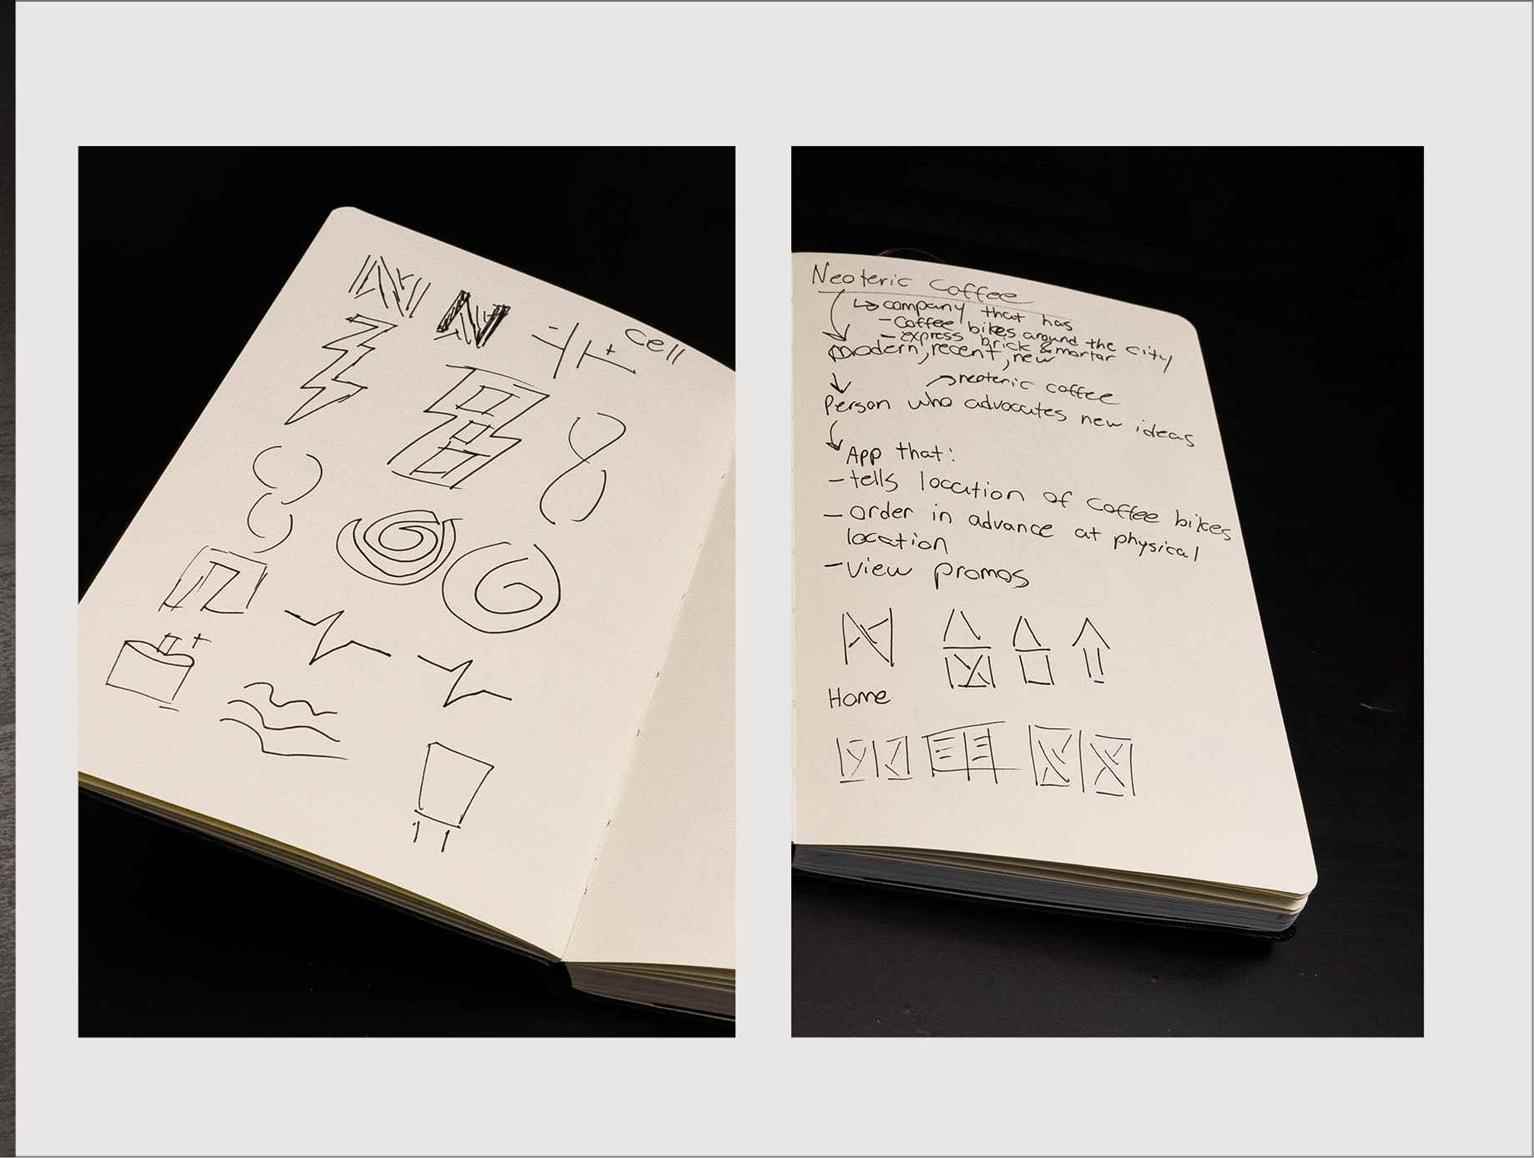 cell
Neoteric Coffee
↳ company that has
- Coffee bikes around the city
- express brick & mortar
modern, recent, new
↗ neoteric coffee
Person who advocates new ideas
App that:
- tells location of coffee bikes
- order in advance at physical
location
- view promos
Home